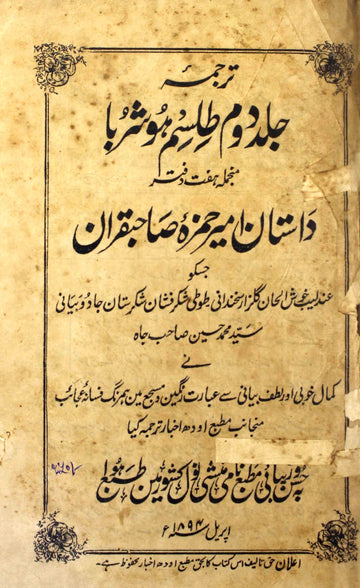 ترجمہ
جلد دوم طلسم ہوشربا
منجملہ ہفت دفتر
داستان امیر حمزہ صاحبقران
جسکو
عندلیب خوش الحان گلزار سخندانی طوطی شکر فشان شکرستان جادو بیانی
سید محمد حسین صاحب جاہ
نے
کمال خوبی اور لطف بیانی سے عبارت رنگین و مسجع مین ہم رنگ فسانۂ عجائب
منجانب مطبع اودھ اخبار ترجمہ کیا
مطبع نامی منشی نولکشور مین طبع ہوا
اپریل ۱۸۹۲ء
اعلان حق تالیف اس کتاب کا بحق مطبع اودھ اخبار محفوظ ہے۔